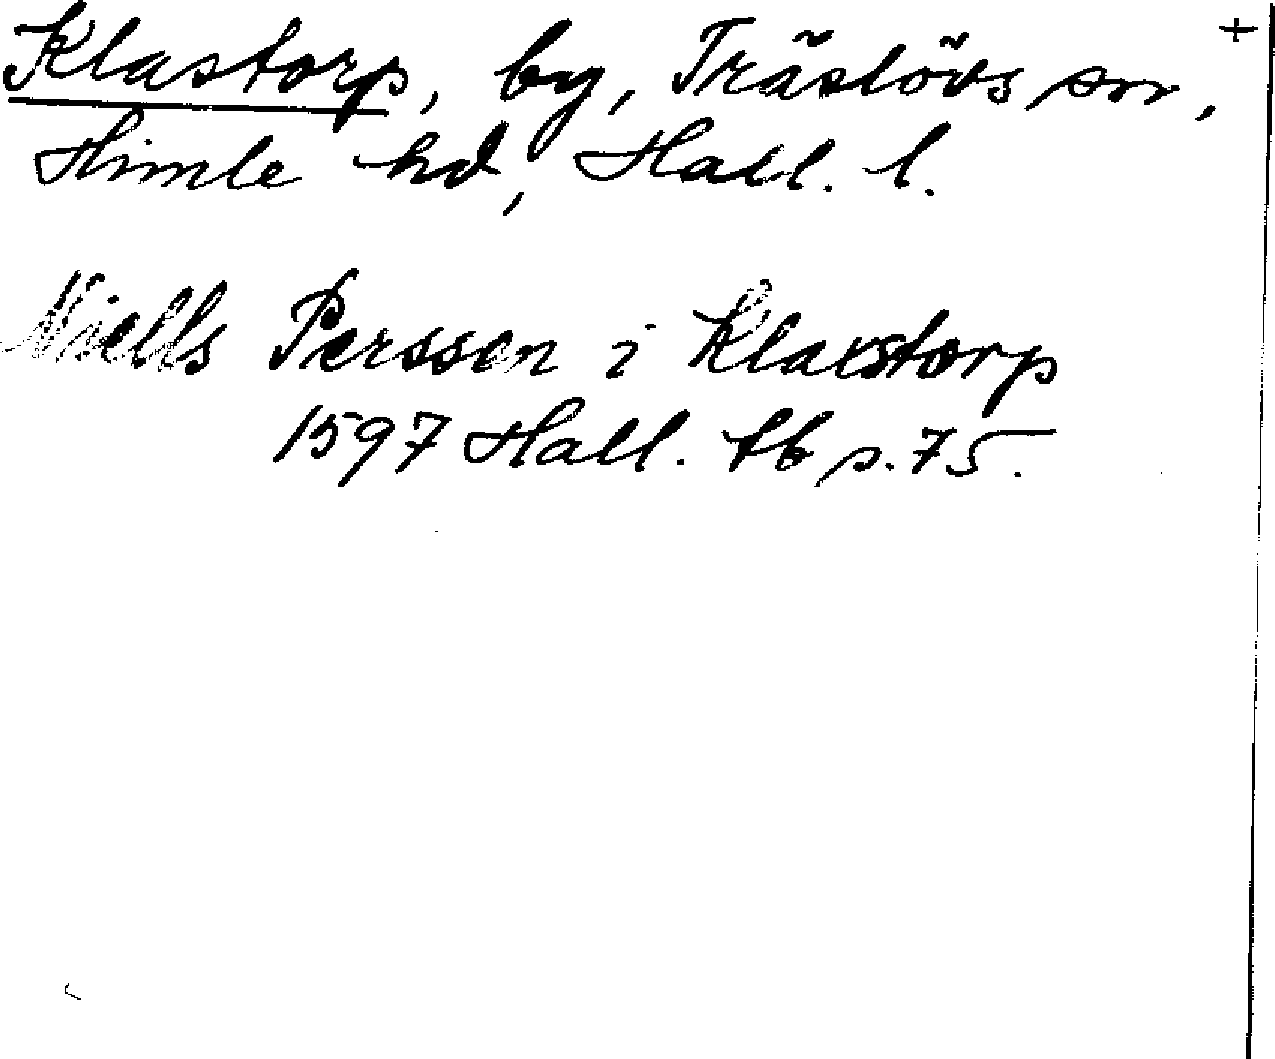 Klastorp, by, Träslövs sn, +
Himle hd, Hall. l.
Niells Persson i Klaustorp
1597 Hall. tb s. 75.